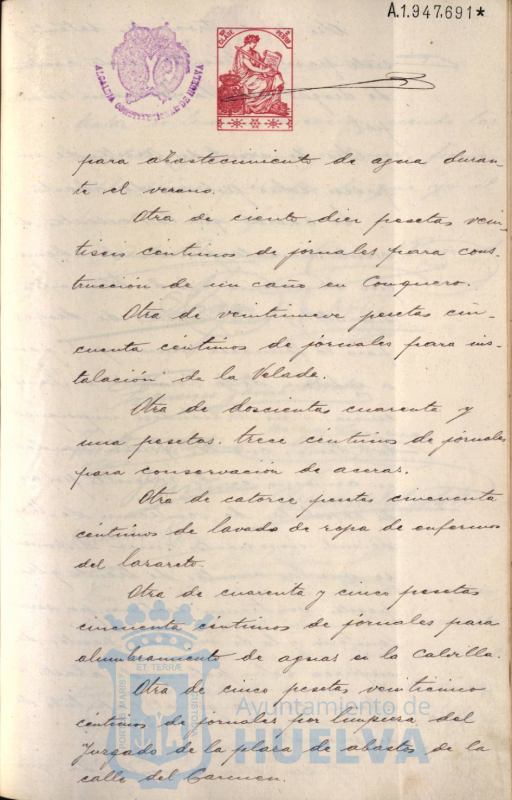 A.1.947.691*
CLASE
PESETAS
ALCALDIA CONSTITUCIONAL DE HUELVA
para abastecimiento de agua duran-
te el verano.
Otra de ciento diez pesetas vein-
tiseis centimos de jornales para cons-
trucción de un caño en Conquero.
Otra de veintinueve pesetas cin-
cuenta céntimos de jornales para ins-
talación de la Velada.
Otra de doscientas cuarenta y
una pesetas trece céntimos de jornales
para conservación de aceras.
Otra de catorce pesetas cincuenta
céntimos de lavado de ropa de enfermos
del lazareto.
Otra de cuarenta y cinco pesetas
cincuenta céntimos de jornales para
alumbramiento de aguas en la Calvilla.
Otra de cinco pesetas veinticinco
céntimos de jornales por limpieza del
Juzgado de la plaza de abastos de la
calle del Carmen.
PORTUS MARIS ET TERRÆ CUSTODIA
Ayuntamiento de
HUELVA